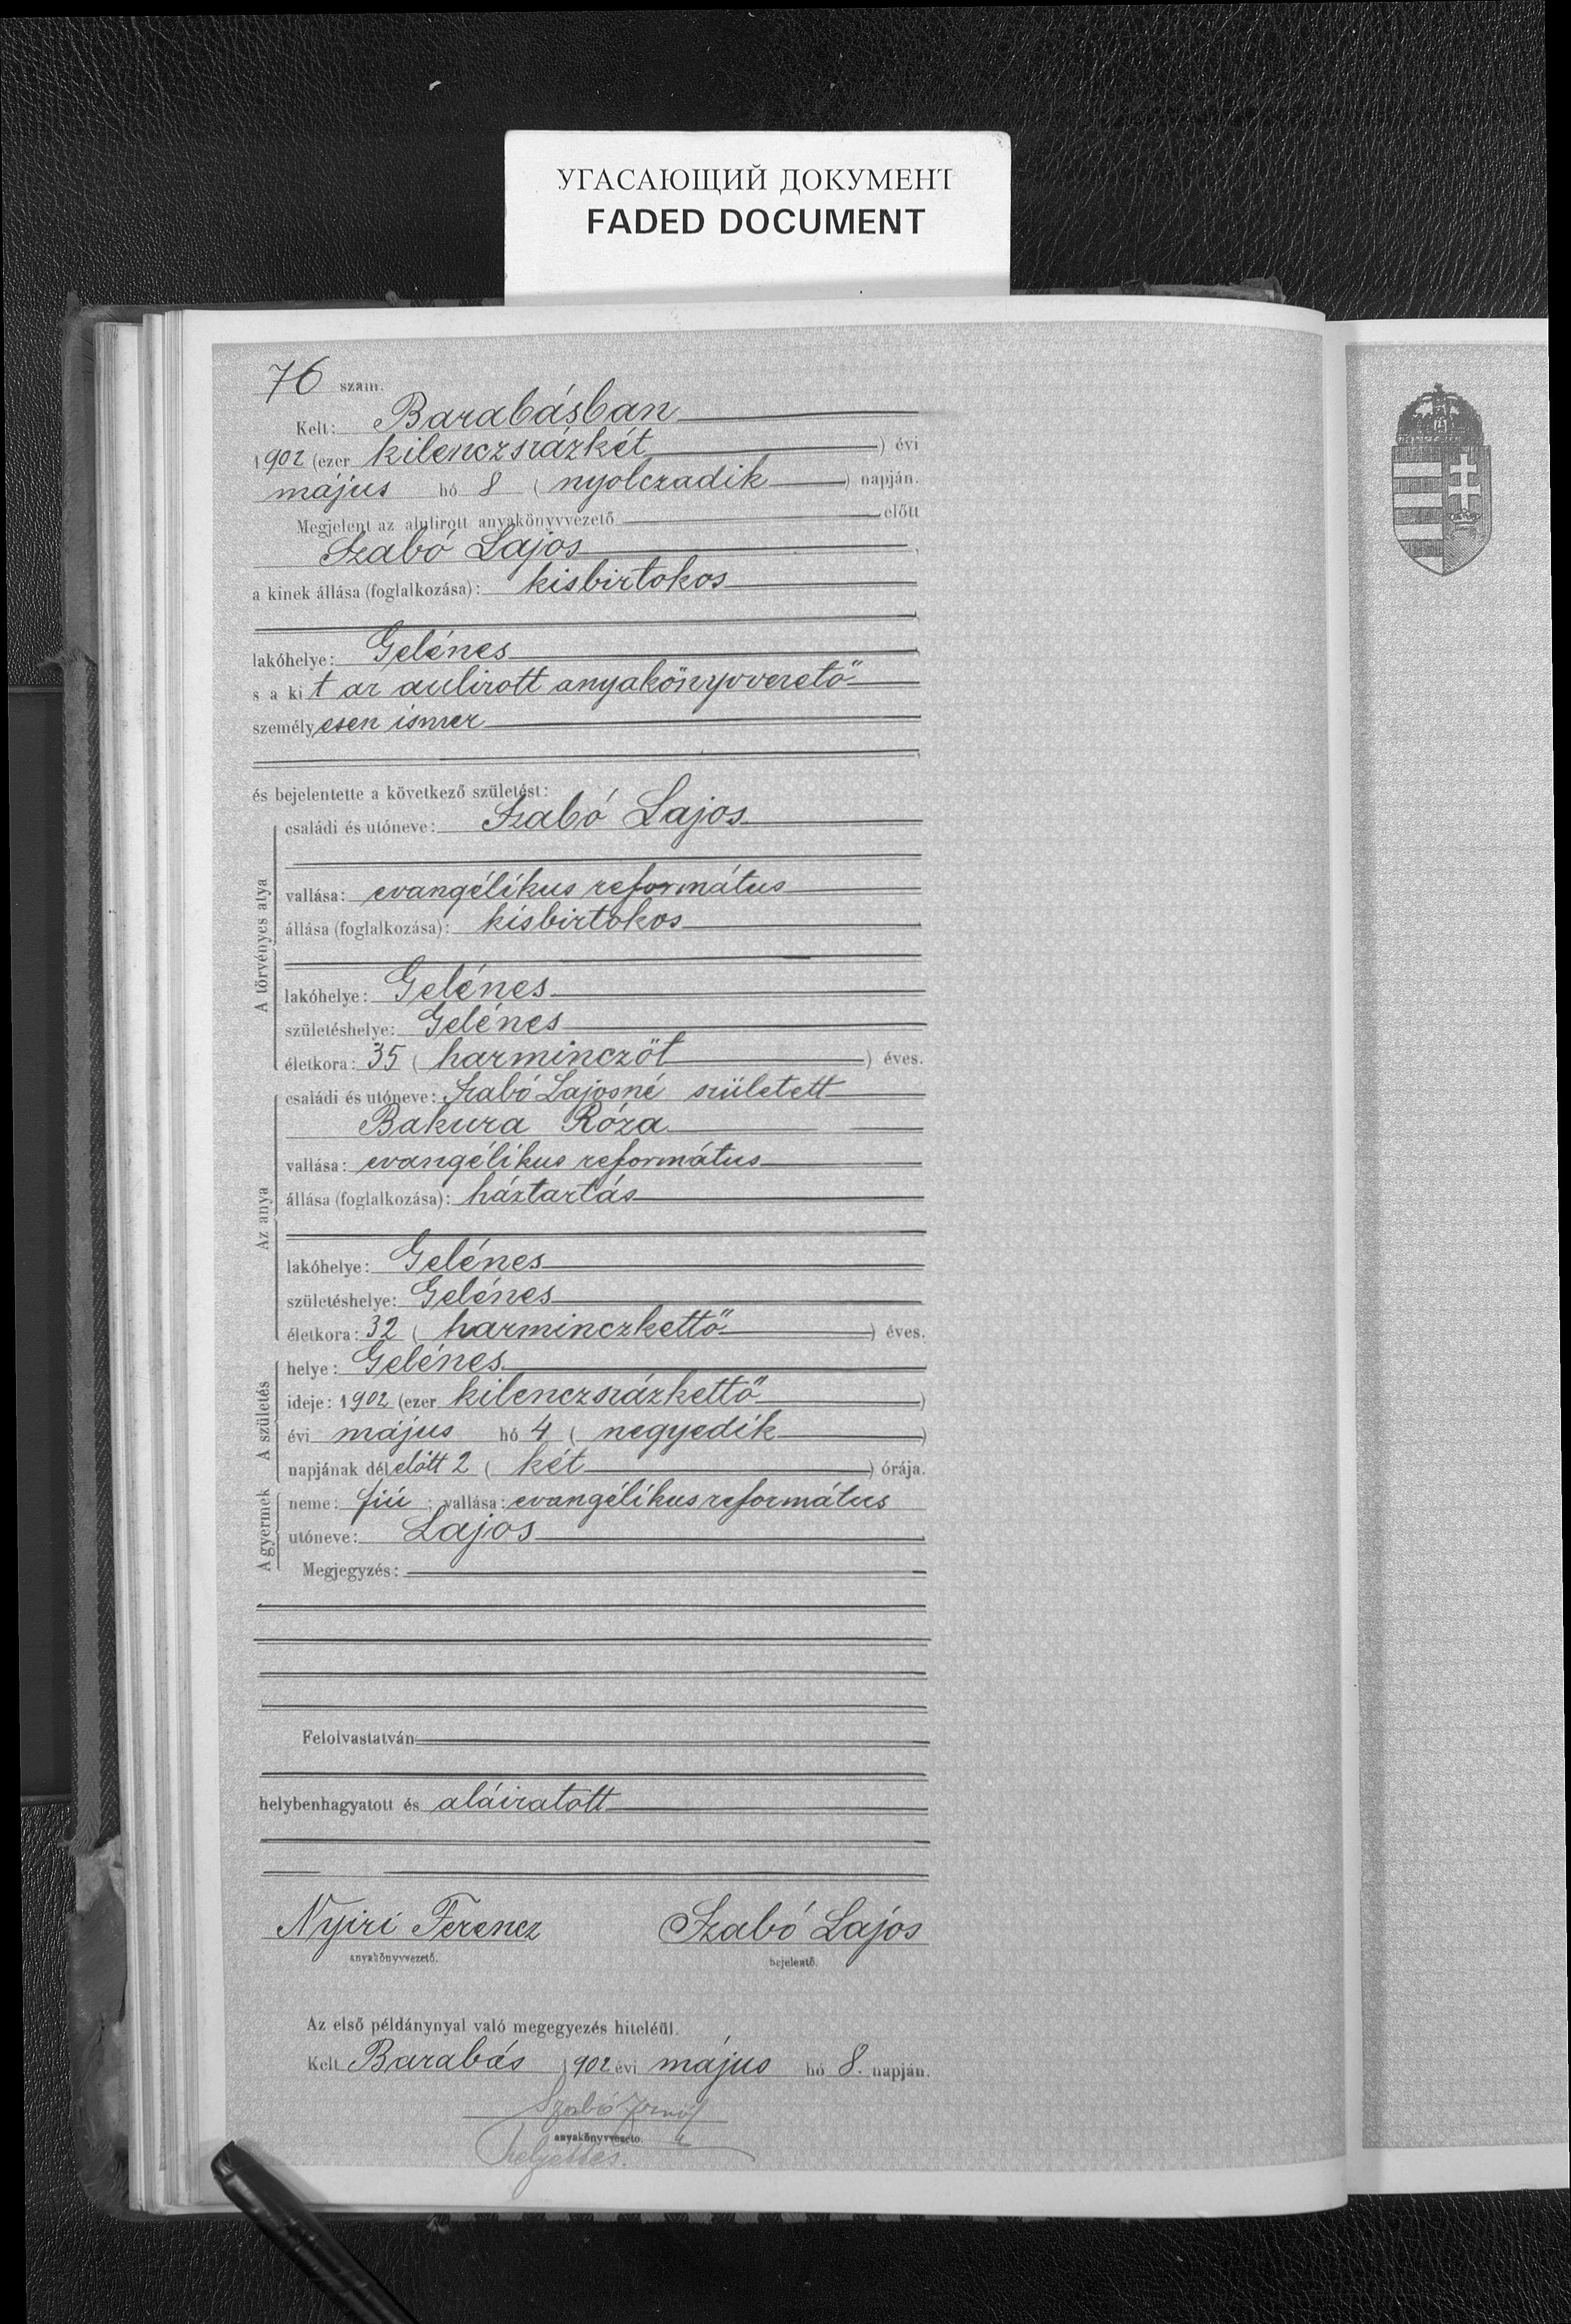 УГАСАЮЩИЙ ДОКУМЕНТ
FADED DOCUMENT
76 szám.
Kelt: Barabásban
1902 (ezer kilenczszázkét ) évi
május hó 8 ( nyolczadik ) napján.
Megjelent az alulirott anyakönyvvezető előtt
Szabó Lajos
a kinek állása (foglalkozása): kisbirtokos
lakóhelye: Gelénes
s a kit az aulirott anyakönyvvezető
személyesen ismer
és bejelentette a következő születést:
A törvényes atya
családi és utóneve: Szabó Lajos
vallása: evangélikus református
állása (foglalkozása): kisbirtokos
lakóhelye: Gelénes
születéshelye: Gelénes
életkora: 35 ( harminczöt ) éves.
Az anya
családi és utóneve: Szabó Lajosné született
Bakura Róza
vallása: evangélikus református
állása (foglalkozása): háztartás
lakóhelye: Gelénes
születéshelye: Gelénes
életkora: 32 ( harminczkettő ) éves.
A születés
helye: Gelénes
ideje: 1902 (ezer kilenczszázkettő )
évi május hó 4 ( negyedik )
napjának délelőtt 2 ( két ) órája.
A gyermek
neme: fiú ; vallása: evangélikus református
utóneve: Lajos
Megjegyzés:
Felolvastatván
helybenhagyatott és aláiratott
Nyiri Ferencz Szabó Lajos
anyakönyvvezető. bejelentő.
Az első példánynyal való megegyezés hiteléül.
Kelt Barabás 1902 évi május hó 8. napján.
Szabó
anyakönyvvezető.
helyettes.